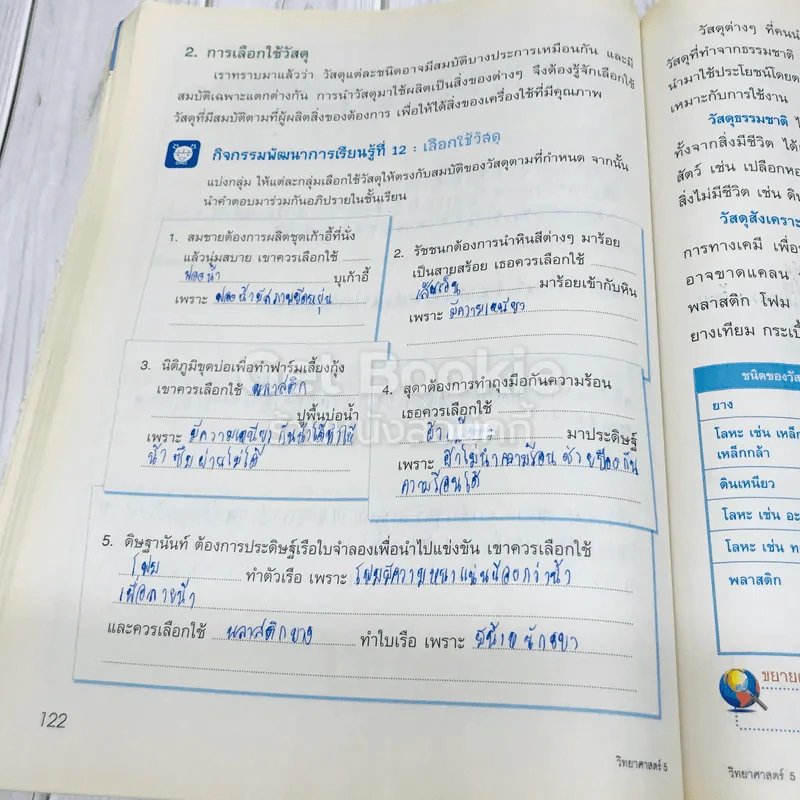 2. การเลือกใช้วัสดุ
เราทราบมาแล้วว่า วัสดุแต่ละชนิดอาจมีสมบัติบางประการเหมือนกัน และมี
สมบัติเฉพาะแตกต่างกัน การนำวัสดุมาใช้ผลิตเป็นสิ่งของต่างๆ จึงต้องรู้จักเลือกใช้
วัสดุที่มีสมบัติตามที่ผู้ผลิตสิ่งของต้องการ เพื่อให้ได้สิ่งของเครื่องใช้ที่มีคุณภาพ
กิจกรรมพัฒนาการเรียนรู้ที่ 12 : เลือกใช้วัสดุ
แบ่งกลุ่ม ให้แต่ละกลุ่มเลือกใช้วัสดุให้ตรงกับสมบัติของวัสดุตามที่กำหนด จากนั้น
นำคำตอบมาร่วมกันอภิปรายในชั้นเรียน
1. สมชายต้องการผลิตชุดเก้าอี้ที่นั่ง
แล้วนุ่มสบาย เขาควรเลือกใช้
ฟองน้ำ บุเก้าอี้
เพราะ ฟองน้ำมีสภาพยืดหยุ่น
2. รัชชนกต้องการนำหินสีต่างๆ มาร้อย
เป็นสายสร้อย เธอควรเลือกใช้
เส้นเอ็น มาร้อยเข้ากับหิน
เพราะ มีความเหนียว
3. นิติภูมิขุดบ่อเพื่อทำฟาร์มเลี้ยงกุ้ง
เขาควรเลือกใช้ พลาสติก
ปูพื้นบ่อน้ำ
เพราะ มีความเหนียว กันน้ำได้
น้ำซึมผ่านไม่ได้
4. สุดาต้องการทำถุงมือกันความร้อน
เธอควรเลือกใช้
ผ้า มาประดิษฐ์
เพราะ ผ้าไม่นำความร้อน ช่วยป้องกัน
ความร้อนได้
5. ดิษฐานันท์ ต้องการประดิษฐ์เรือใบจำลองเพื่อนำไปแข่งขัน เขาควรเลือกใช้
โฟม ทำตัวเรือ เพราะ โฟมมีความหนาแน่นน้อยกว่าน้ำ
และควรเลือกใช้ พลาสติกบาง ทำใบเรือ เพราะ มีน้ำหนักเบา
122
วิทยาศาสตร์ 5
Get Bookie
วัสดุต่างๆ ที่คนนำ
วัสดุที่ทำจากธรรมชาติ
นำมาใช้ประโยชน์โดยต
เหมาะกับการใช้งาน
วัสดุธรรมชาติ
ทั้งจากสิ่งมีชีวิต ได้
สัตว์ เช่น เปลือกหอ
สิ่งไม่มีชีวิต เช่น ดิน
วัสดุสังเคราะ
การทางเคมี เพื่อ
อาจขาดแคลน
พลาสติก โฟม
ยางเทียม กระเบื้
ชนิดของวัส
ยาง
โลหะ เช่น เหล็ก
เหล็กกล้า
ดินเหนียว
โลหะ เช่น อะ
โลหะ เช่น ท
พลาสติก
ขยาย
วิทยาศาสตร์ 5